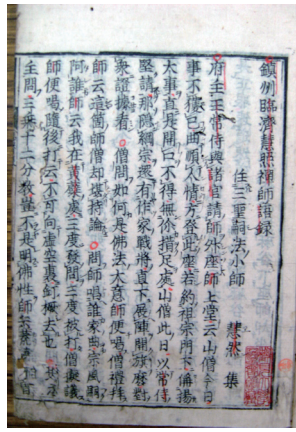 鎮州臨濟慧照禪師語錄
住三聖嗣法小師 慧然 集
府主王常侍與諸官請師升座師上堂云山僧今日
事不獲已曲順人情方登此座若約祖宗門下稱揚
大事直是開口不得無你措足處山僧此日以常侍
堅請那隱綱宗還有作家戰將直下展陣開旗麼對
衆證據看僧問如何是佛法大意師便喝僧禮拜
師云這箇師僧却堪持論問師唱誰家曲宗風嗣
阿誰師云我在黃蘗處三度發問三度被打僧擬議
師便喝隨後打云不可向虛空裏釘橛去也有座
主問三乘十二分教豈不是明佛性師云荒草